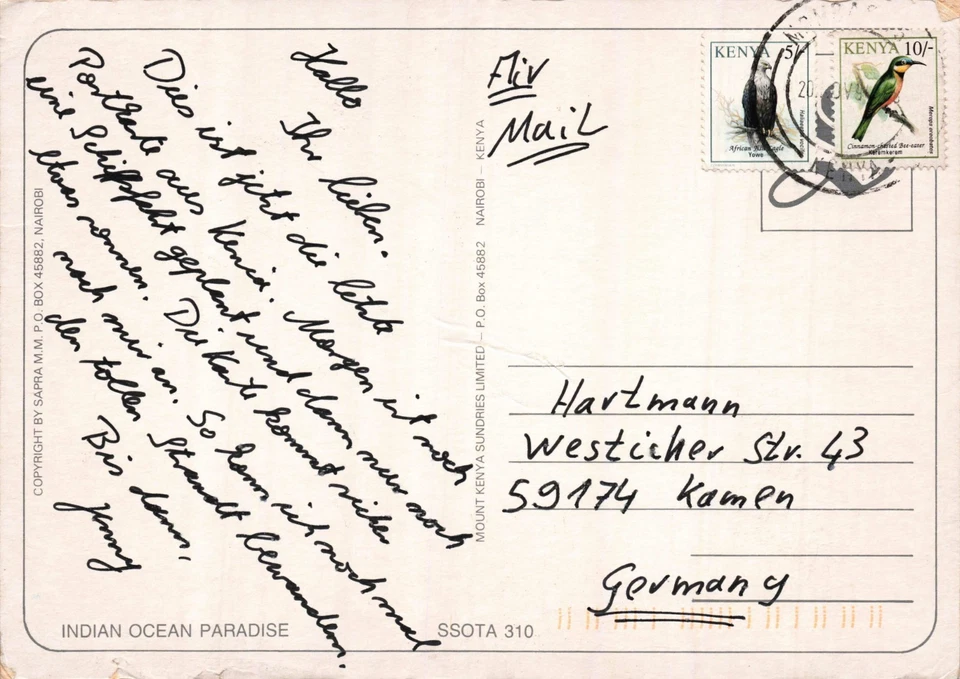 Hallo Ihr lieben.
Dies ist jetzt die letzte
Postkarte aus Kenia. Morgen ist noch
eine Schiffsfahrt geplant und dann nur noch
etwas sonnen. Die Karte kommt sicher
nach mir an. So kann ich noch mal
den tollen Strandt bewundern.
Bis dann,
Jenny
Air
Mail
KENYA 5/-
African Fish Eagle
KENYA 10/-
Cinnamon-chested Bee-eater
KENYA
Hartmann
Westicker Str. 43
59174 Kamen
Germany
COPYRIGHT BY SAPRA M.M. P.O. BOX 45882, NAIROBI
MOUNT KENYA SUNDRIES LIMITED – P.O. Box 45882 NAIROBI – KENYA
INDIAN OCEAN PARADISE
SSOTA 310